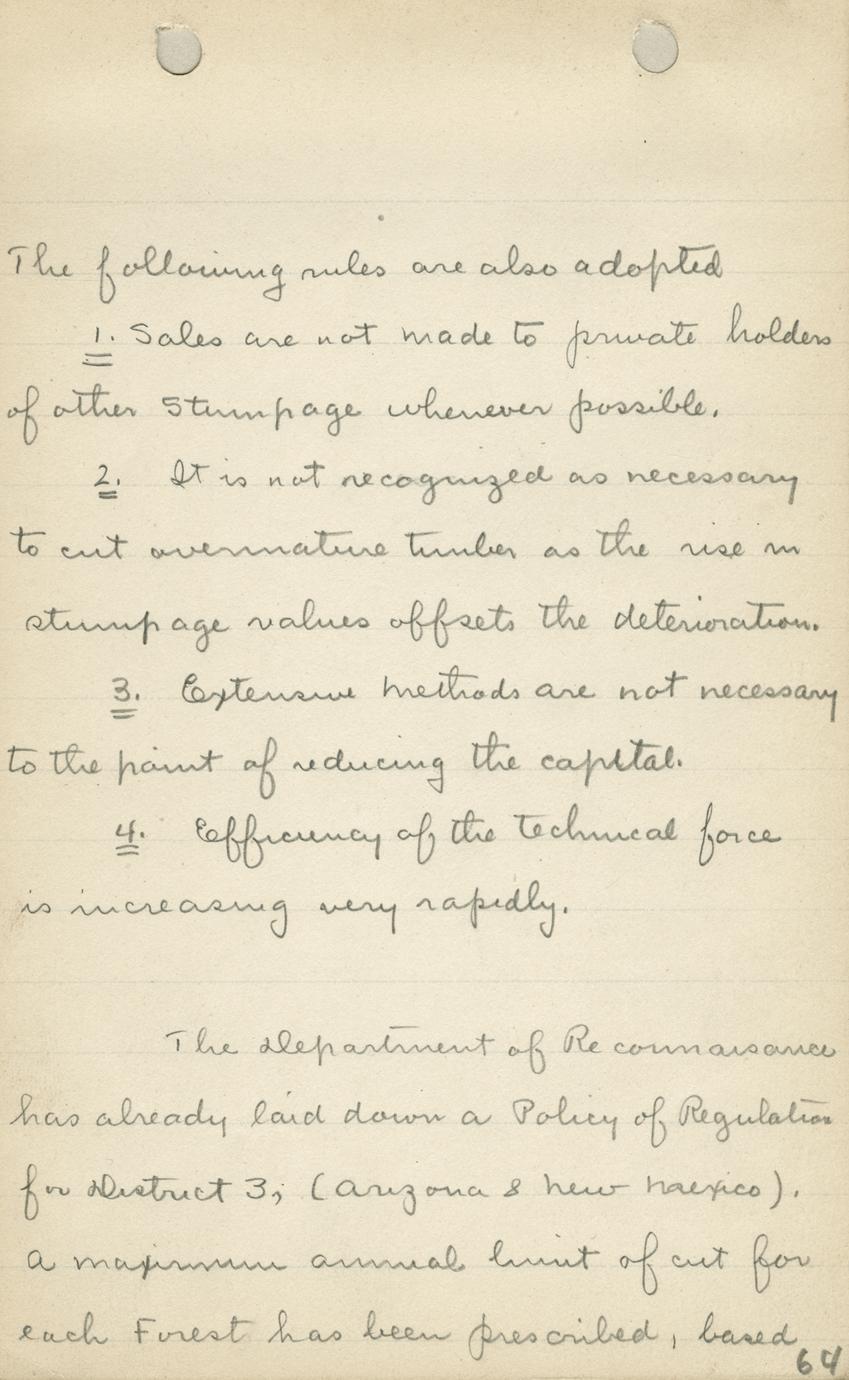 The following rules are also adopted
1. Sales are not made to private holders
of other Stumpage whenever possible.
2. It is not recognized as necessary
to cut overmature timber as the rise in
stumpage values offsets the deterioration.
3. Extensive methods are not necessary
to the point of reducing the capital.
4. Efficiency of the technical force
is increasing very rapidly.
The Department of Reconnaisance
has already laid down a Policy of Regulation
for District 3, (Arizona & New Mexico).
A maximum annual limit of cut for
each Forest has been prescribed, based
64